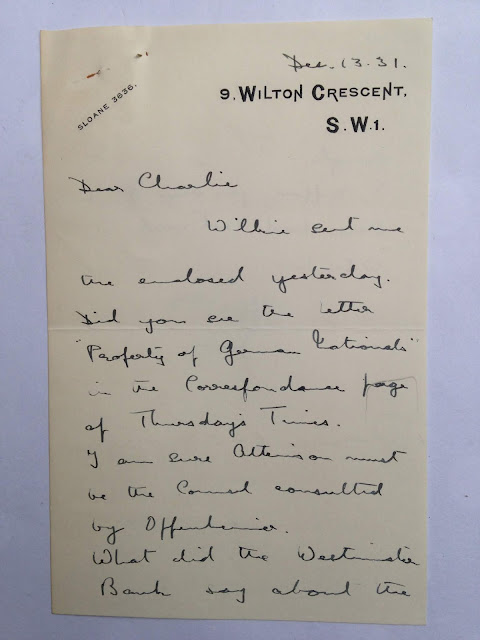 Dec. 13. 31.
SLOANE 3636.
9. WILTON CRESCENT,
S.W.1.
Dear Charlie
Willie sent me
the enclosed yesterday.
Did you see the letter
"Property of German Nationals"
in the Correspondance page
of Thursday's Times.
I am sure must
be the Counsel consulted
by Offenheimer.
What did the Westminster
Bank say about the